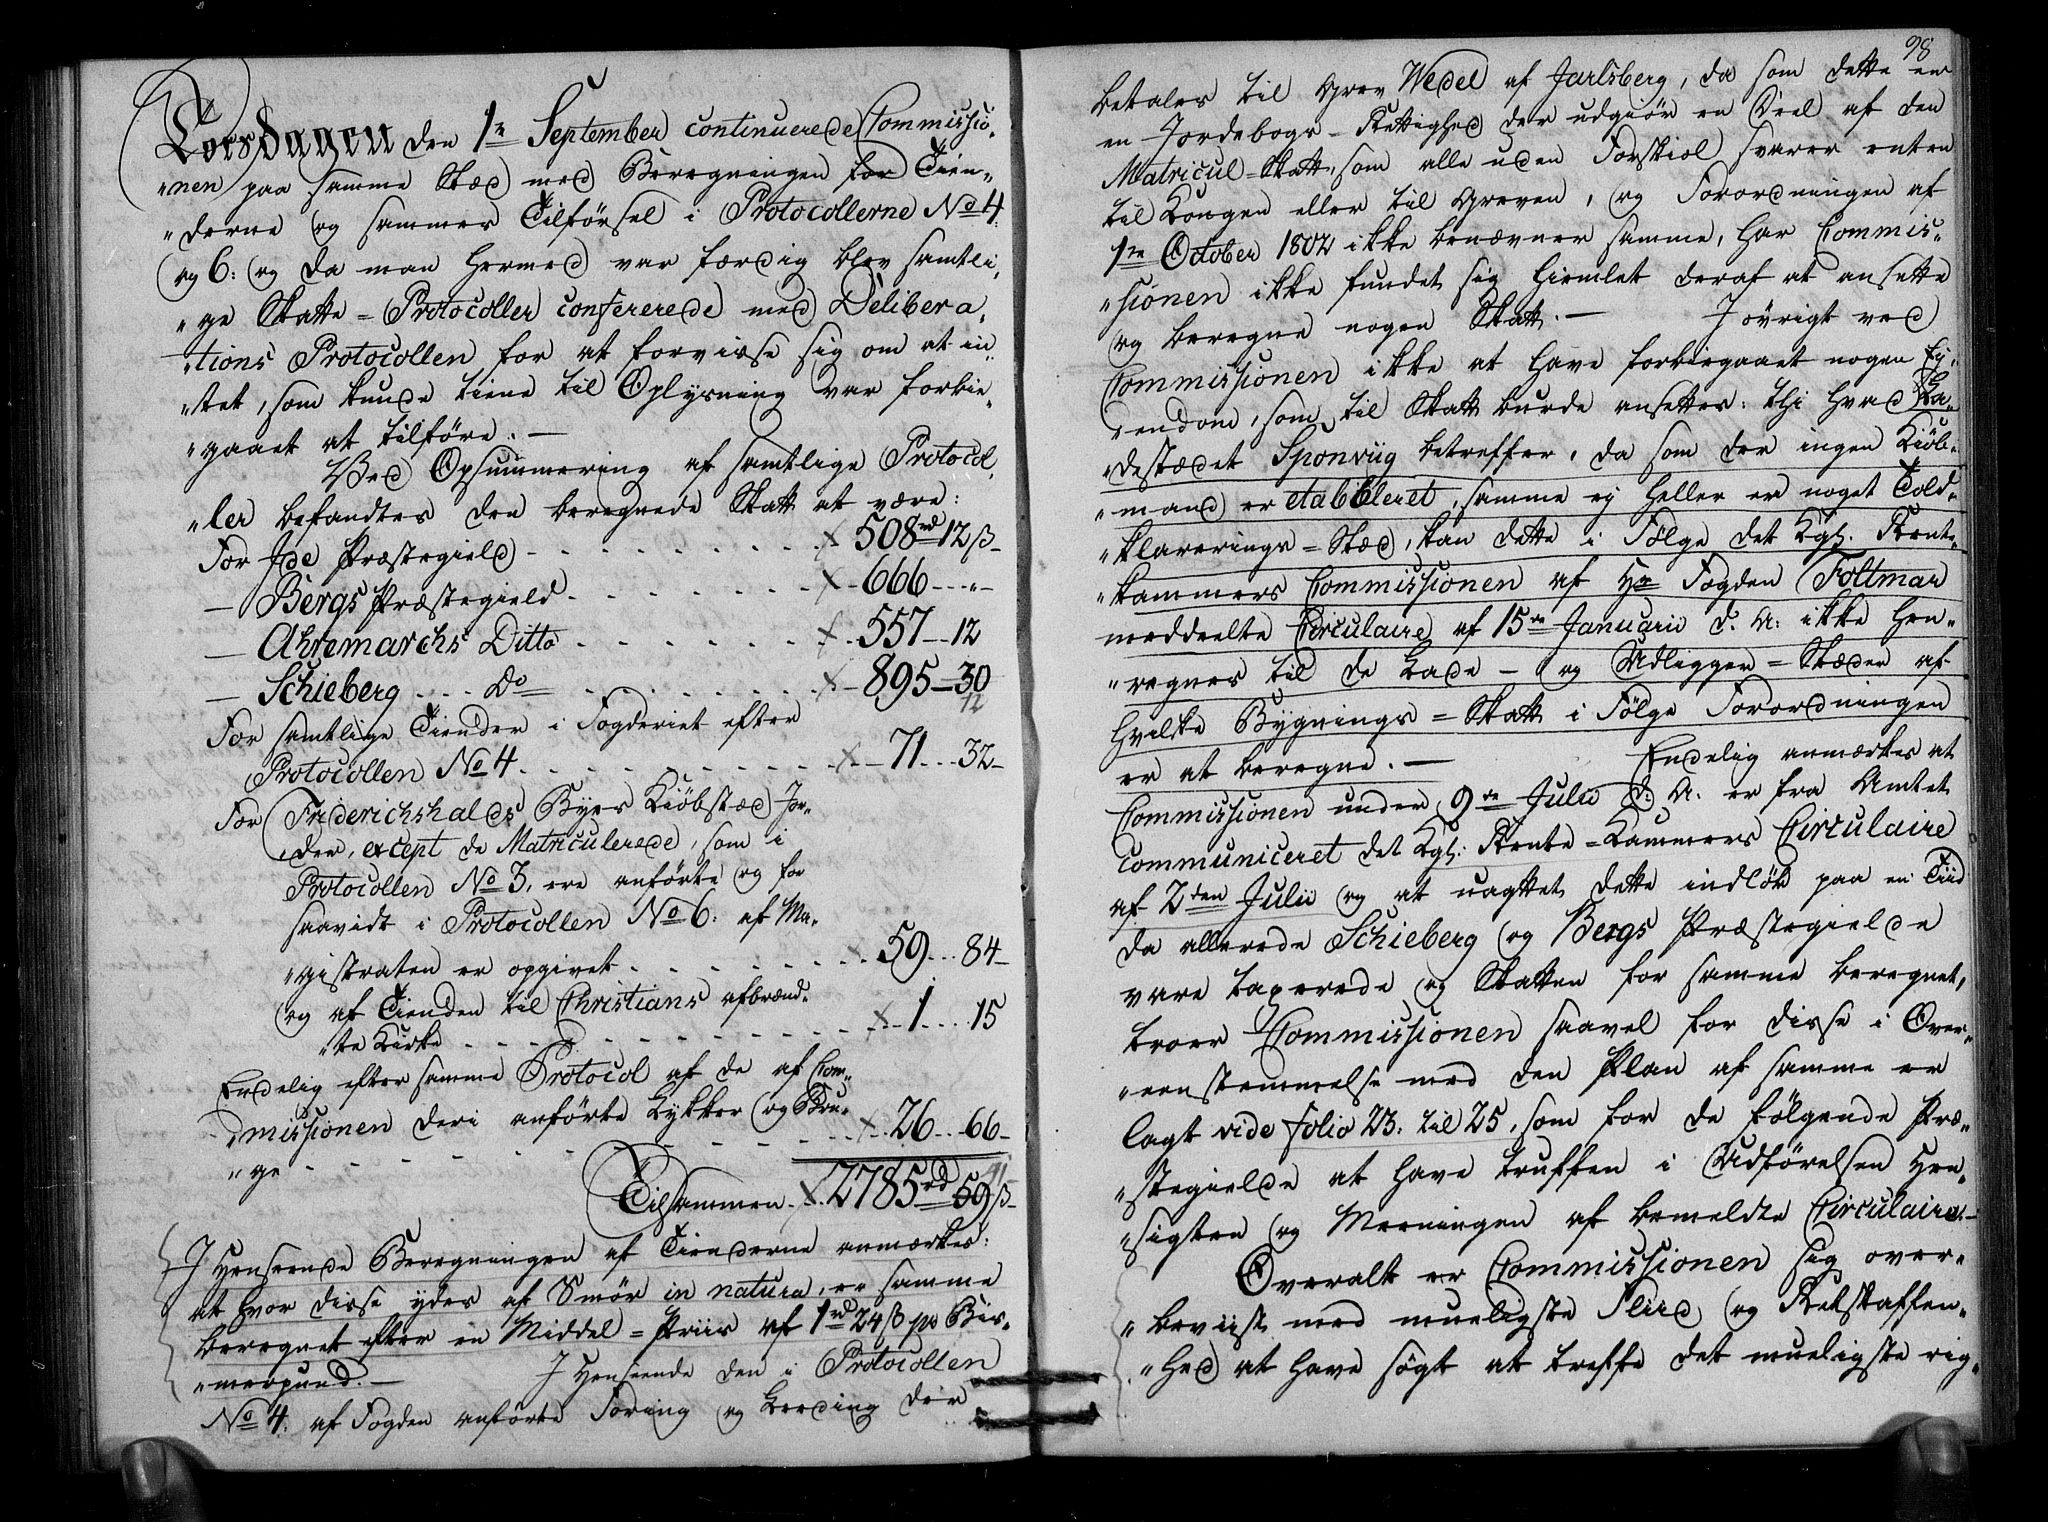 Torsdagen den 1te September continuerede Commissio„
„nen paa samme Stæd med Beregningen for Tien„
„derne og sammes Tilførsel i Protocollerne No 4.
og 6: og da man hermed var færdig blev samtli„
„ge Skatte=Protocoller confererede med Delibera„
„tions Protocollen for at forvisse sig om at in„
„tet, som kunde tiene til Oplysning var forbie„
„gaaet at tilføre. —
Ved Opsummering af samtlige Protocol„
„ler befandtes den beregnede Skatt at være:
For Idde Præstegield - - - 508 rd 12 β
— Bergs Præstegield - - - 666 - - „ -
— Ahremarchs Ditto - - - 557 - 12
— Schieberg - - Do - - - 895 - 30
12
For samtlige Tiender i Fogderiet efter
Protocollen No 4 - - - 71 - - 32 -
For Friderichshalds Byes Kiøbstæd Jor„
„der, except de Matriculerede, som i
Protocollen No 3, ere anførte og for
saavidt i Protocollen No 6: af Ma„
„gistraten er opgivet - - - 59 - - 84 -
og af Tienden til Christians afbrænd„
„te Kirke - - - 1 - - 15
Endelig efter samme Protocol af de af Com„
„missionen deri anførte Løkker og Bru„
„ge - - - 26 - - 66 -
Tilsammen. 2785 rd 59 β
41
I Henseende Beregningen af Tienderne anmærkes:
at hvor disse ydes af Smør in natura, er samme
beregnet efter en Middel=Priis af 1 rd 24 β pr Bis„
„merpund. — I Henseende den i Protocollen
No 4. af Fogden anførte Foring og Leeding der
98
betales til Grev Wedel af Jarlsberg, da som dette er
en Jordebogs=Rettighed der udgiør en Deel af den
Matricul=Skatt, som alle uden Forskiel svarer enten
til Kongen eller til Greven, og Forordningen af
1te October 1802 ikke benævner samme, har Commis„
„sionen ikke fundet sig hiemlet deraf at ansette
og beregne nogen Skatt. — I øvrigt veed
Commissionen ikke at have forbiegaaet nogen Ey„
„endom, som til Skatt burde ansettes: thi hvad La„
„destædet Sponviig betreffer, da som der ingen Kiøb„
„mand er etableret, samme ey heller er noget Told„
„klarerings=Stæd, kan dette i Følge det Kgl. Rente„
„kammers Commissionen af Hr Fogden Foltmar
meddeelte Circulaire af 15de Januarii d. A: ikke hen„
„regnes til de Lade - og Udligger=Stæder af
hvilke Bygnings=Skatt i Følge Forordningen
er at beregne. — Endelig anmærkes at
Commissionen under 9de Julii d. A. er fra Amtet
communiceret det Kgl: Rente=Kammers Circulaire
af 2den Julii og at uagtet dette indløb paa en Tiid
da allerede Schieberg og Bergs Præstegielde
vare taxerede og Skatten for samme beregnet,
troer Commissionen saavel for disse i Over„
„eenstemmelse med den Plan af samme er
lagt vide folio 23: til 25, som for de følgende Præ„
„stegielde at have truffen i Udførelsen Hen„
„sigten og Meeningen af bemeldte Circulaire. —
Overalt er Commissionen sig over„
„beviist med mueligste Fliid og Retskaffen„
„hed at have søgt at treffe det mueligste rig„